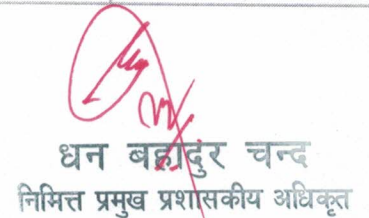 धन बहादुर चन्द
निमित्त प्रमुख प्रशासकीय अधिकृत